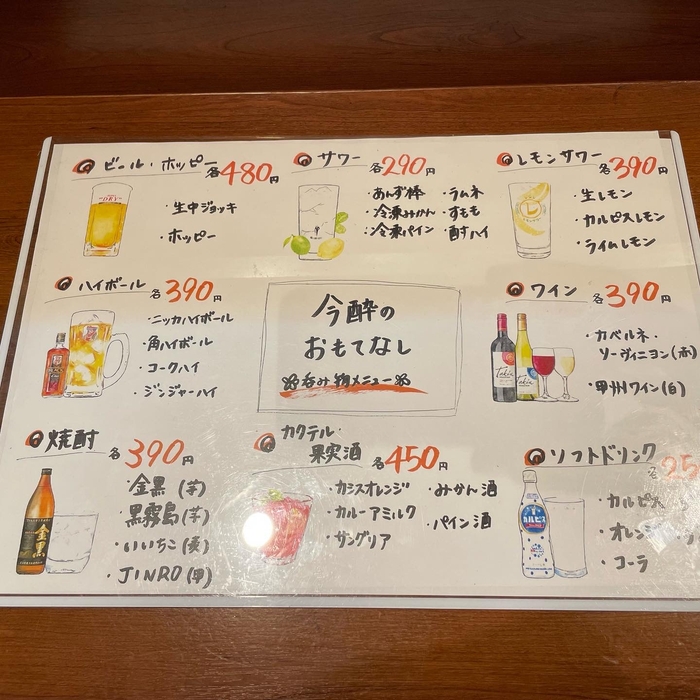 ビール・ホッピー 各480円
・生中ジョッキ
・ホッピー
サワー 各290円
・あんず棒 ・ラムネ
・冷凍みかん ・すもも
・冷凍パイン ・酎ハイ
レモンサワー 各390円
・生レモン
・カルピスレモン
・ライムレモン
ハイボール 各390円
・ニッカハイボール
・角ハイボール
・コークハイ
・ジンジャーハイ
今酔の
おもてなし
呑み物メニュー
ワイン 各390円
・カベルネ・
ソーヴィニヨン(赤)
・甲州ワイン(白)
焼酎 各390円
・金黒(芋)
・黒霧島(芋)
・いいちこ(麦)
・JINRO(甲)
カクテル・
果実酒 各450円
・カシスオレンジ ・みかん酒
・カルーアミルク ・パイン酒
・サングリア
ソフトドリンク
各25
・カルピス
・オレンジ
・コーラ
DRY
金黒
カルピス